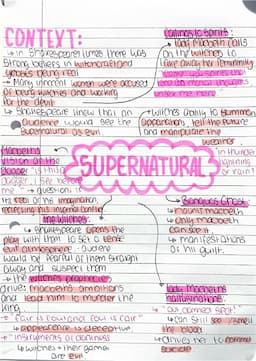 CONTEXT:
→ in Shakespeares times there was
strong beliefs in witchcraft and
ghosts being real
→ Many innocent women were accused
of being witches and working
for the devil
→ Shakespeare knew that an
audience would see the
supernatural as evil
calling to spirits:
→ lady Macbeth calls
on the witches to
take away her femininity
→ witches ability to summon
apparitions, tell the future
and manipulate the
weather
"in thunder,
lightning
or rain"
SUPERNATURAL
Macbeths
vision of the
dagger "is this a
dagger I see before
me" → question is
its real or his imagination,
reflecting his internal conflict
The witches
→ Shakespeare opens the
play with them to set a
evil atmosphere - audience
would be fearful of them straight
away and suspect them
→ the witches prophecies
drives Macbeths ambitions
and lead him to murder the
king
→ "fair is foul and foul is fair"
→ appearance is deceptive.
→ "instruments of darkness"
→ witches + their games
are evil
Banquos Ghost
→ haunts macbeth
→ only macbeth
can see it
→ manifestations
of his guilt.
lady Macbeth
hallucinations:
→ "out damned spot"
→ can still see + smell
the blood
→ drives her to commit
suicide